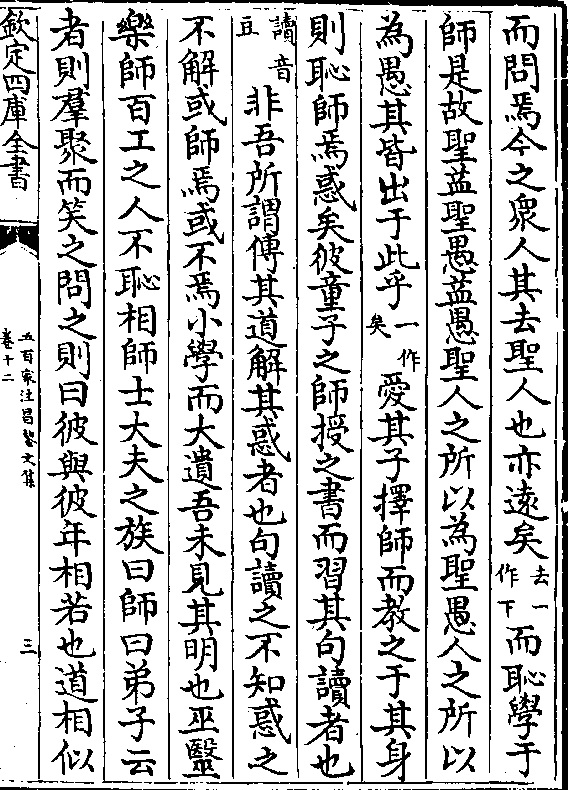 而問焉今之衆人其去聖人也亦遠矣去一作下而恥學于
師是故聖益聖愚益愚聖人之所以為聖愚人之所以
為愚其皆出于此乎一作矣愛其子擇師而教之于其身
則恥師焉惑矣彼童子之師授之書而習其句讀者也
讀音豆非吾所謂傳其道解其惑者也句讀之不知惑之
不解或師焉或不焉小學而大遺吾未見其明也巫毉
樂師百工之人不恥相師士大夫之族曰師曰弟子云
者則羣聚而笑之問之則曰彼與彼年相若也道相似
欽定四庫全書
五百家注昌黎文集
卷十二
三